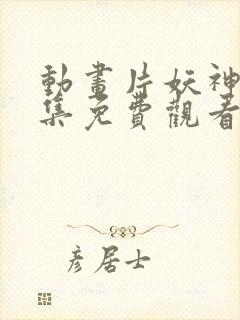 動畫片妖神
集免費觀看
彥居士